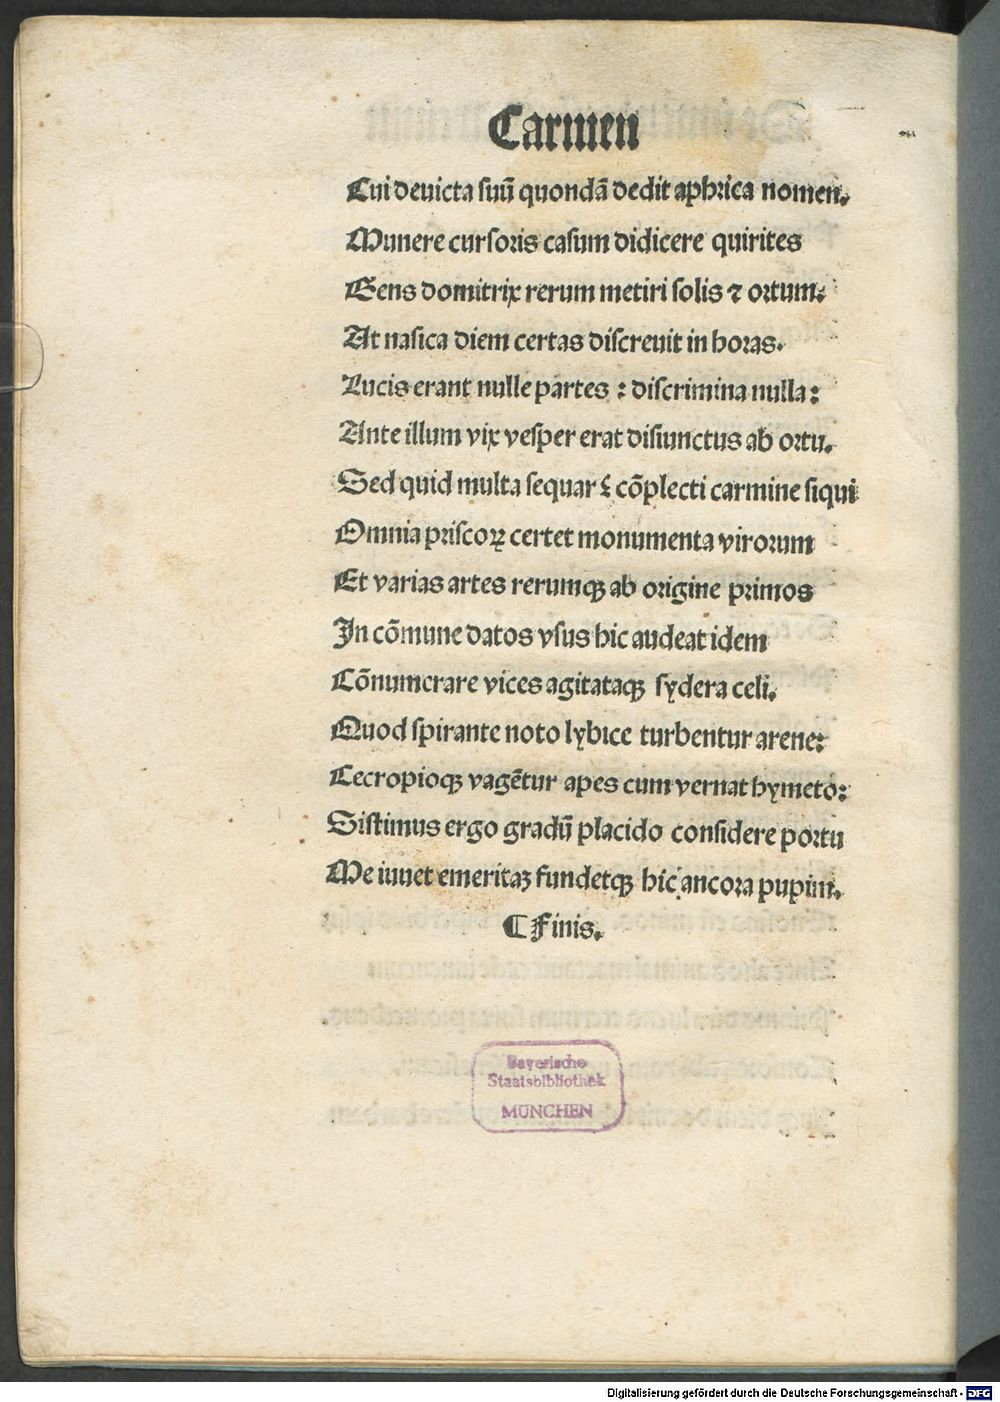 Carmen
Cui deuicta suū quondā dedit aphrica nomen.
Munere cursoris casum didicere quirites
Gens domitrix rerum metiri solis ⁊ ortum:
At nasica diem certas discreuit in horas.
Lucis erant nulle partes : discrimina nulla:
Ante illum vix vesper erat disiunctus ab ortu.
Sed quid multa sequar ⁊ cōplecti carmine siqui
Omnia priscoꝝ certet monumenta virorum
Et varias artes rerumqꝫ ab origine primos
In cōmune datos vsus hic audeat idem
Cōnumerare vices agitataqꝫ sydera celi.
Quod spirante noto lybice turbentur arene:
Cecropioqꝫ vagētur apes cum vernat hymeto:
Sistimus ergo gradū placido considere portu
Me iuuet emeritaꝫ fundetqꝫ hic ancora pupim.
⁋ Finis.
Bayerische
Staatsbibliothek
MÜNCHEN
Digitalisierung gefördert durch die Deutsche Forschungsgemeinschaft - DFG